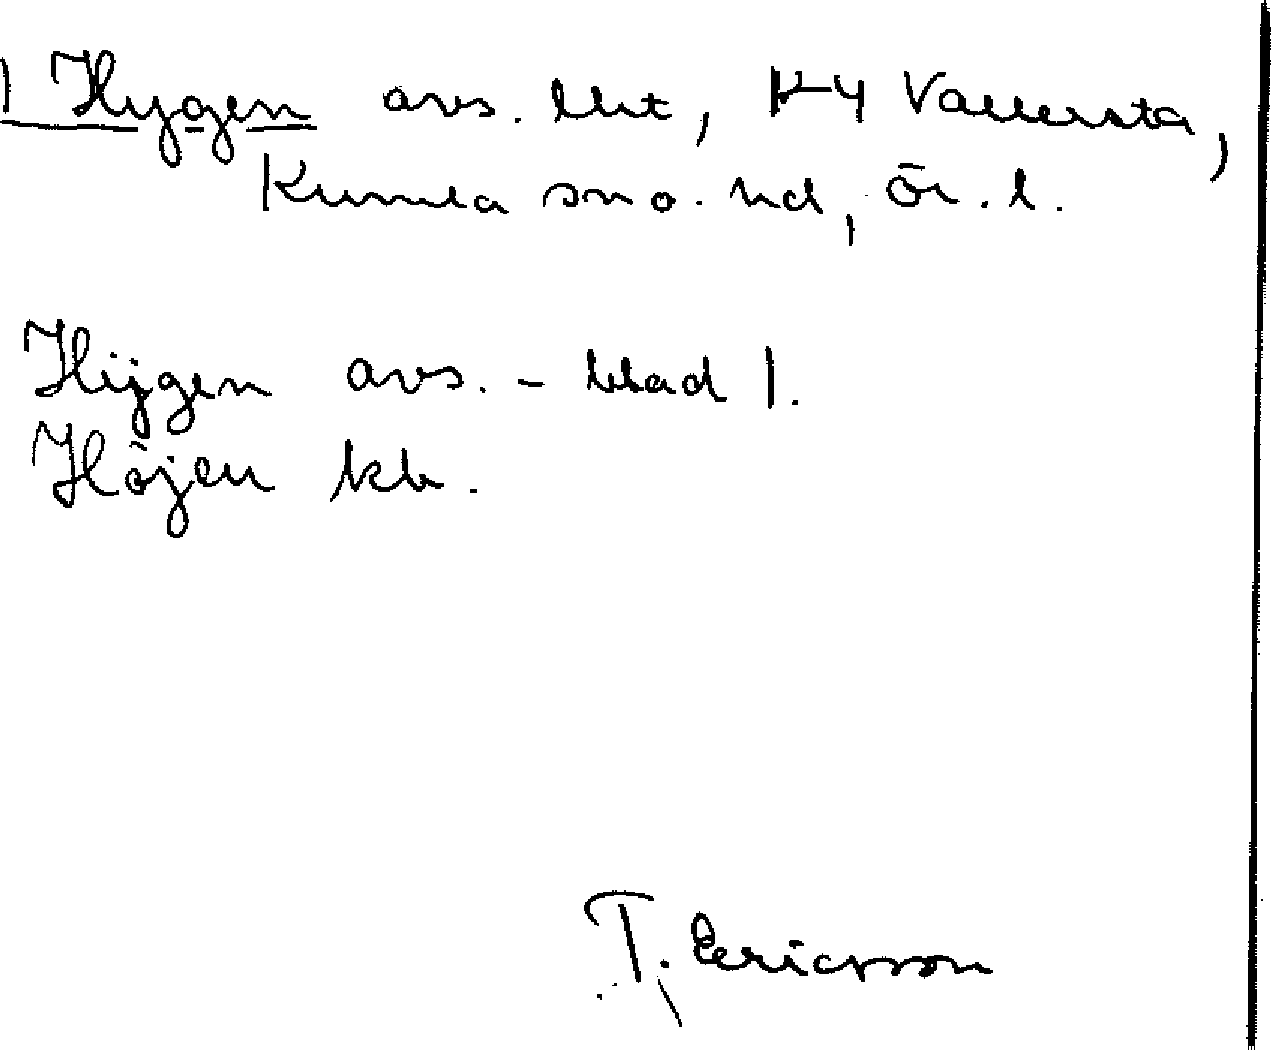 1 Hygen avs. lht, K-4 Vallersta,
Kumla sn o. hd, Ör. l.
Hijgen avs. - blad 1.
Höjen kb.
T. Ericsson